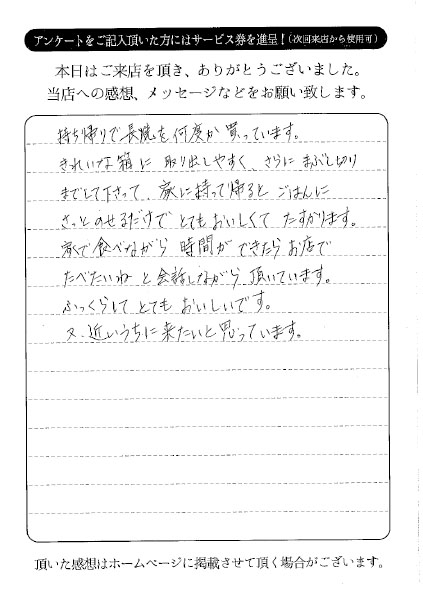 アンケートをご記入頂いた方にはサービス券を進呈！（次回来店から使用可）
本日はご来店を頂き、ありがとうございました。
当店への感想、メッセージなどをお願い致します。
持ち帰りで長焼を何度か買っています。
きれいな箱に取り出しやすく、さらにまぶし切り
までして下さって、家に持って帰るとごはんに
さっとのせるだけでとてもおいしくてたすかります。
家で食べながら時間ができたらお店で
たべたいねと会話しながら、頂いています。
ふっくらしてとてもおいしいです。
又、近いうちに来たいと思っています。
頂いた感想はホームページに掲載させて頂く場合がございます。